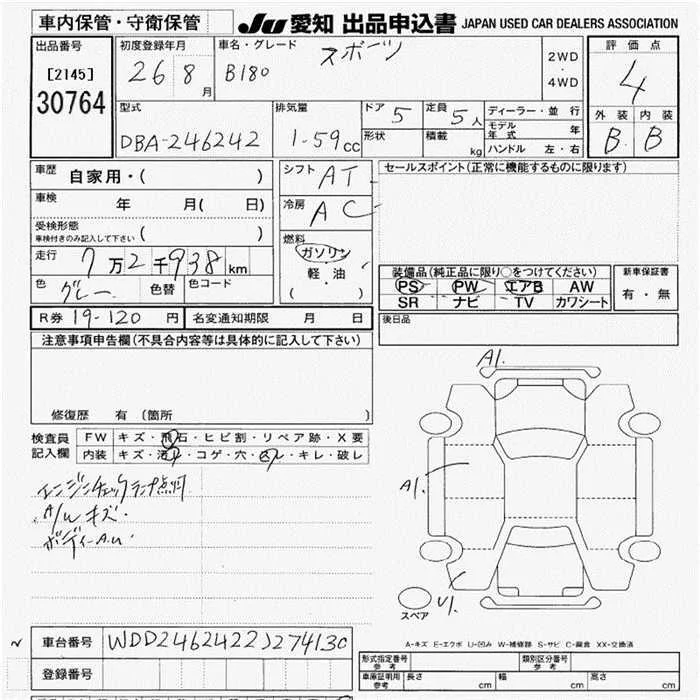 車内保管・守衛保管
JU 愛知 出品申込書 JAPAN USED CAR DEALERS ASSOCIATION
出品番号
[2145]
30764
初度登録年月
26 8月
車名・グレード
スポーツ
B180
2WD
・
4WD
評価点
4
外装 内装
B B
型式
DBA-246242
排気量
1-59cc
ドア 5
形状
定員 5人
積載 kg
ディーラー・並 行
モデル年式 年
ハンドル 左・右
車歴 自家用・( )
車検 年 月( 日)
受検形態
車検付きのみ記入して下さい ( )
走行 7万2千938km
色 グレー 色替 色コード
シフト AT
冷房 AC
燃料
ガソリン
軽 油
( ・ )
セールスポイント(正常に機能するものに限ります)
装備品(純正品に限り○をつけてください)
PS PW エアB AW
SR ナビ TV カワシート
新車保証書
有・無
R券 19-120 円 名変通知期限 月 日
後日品
注意事項申告欄(不具合内容等は具体的に記入して下さい)
修復歴 有 〔箇所 〕
検査員
記入欄
FW キズ・飛石・ヒビ割・リペア跡・X要
内装 キズ・汚レ・コゲ・穴・スレ・キレ・破レ
エンジンチェックランプ点灯
A/Wキズ・
ボディーA.U.
A1.
A1.
U1.
スペア
A-キズ E-エクボ U-凹み W-補修跡 S-サビ C-腐食 XX-交換済
~ 車台番号 WDD2462422J274130
登録番号
形式指定番号
参考
類別区分番号
参考
車原証明用
参考
長さ cm 幅 cm 高さ cm